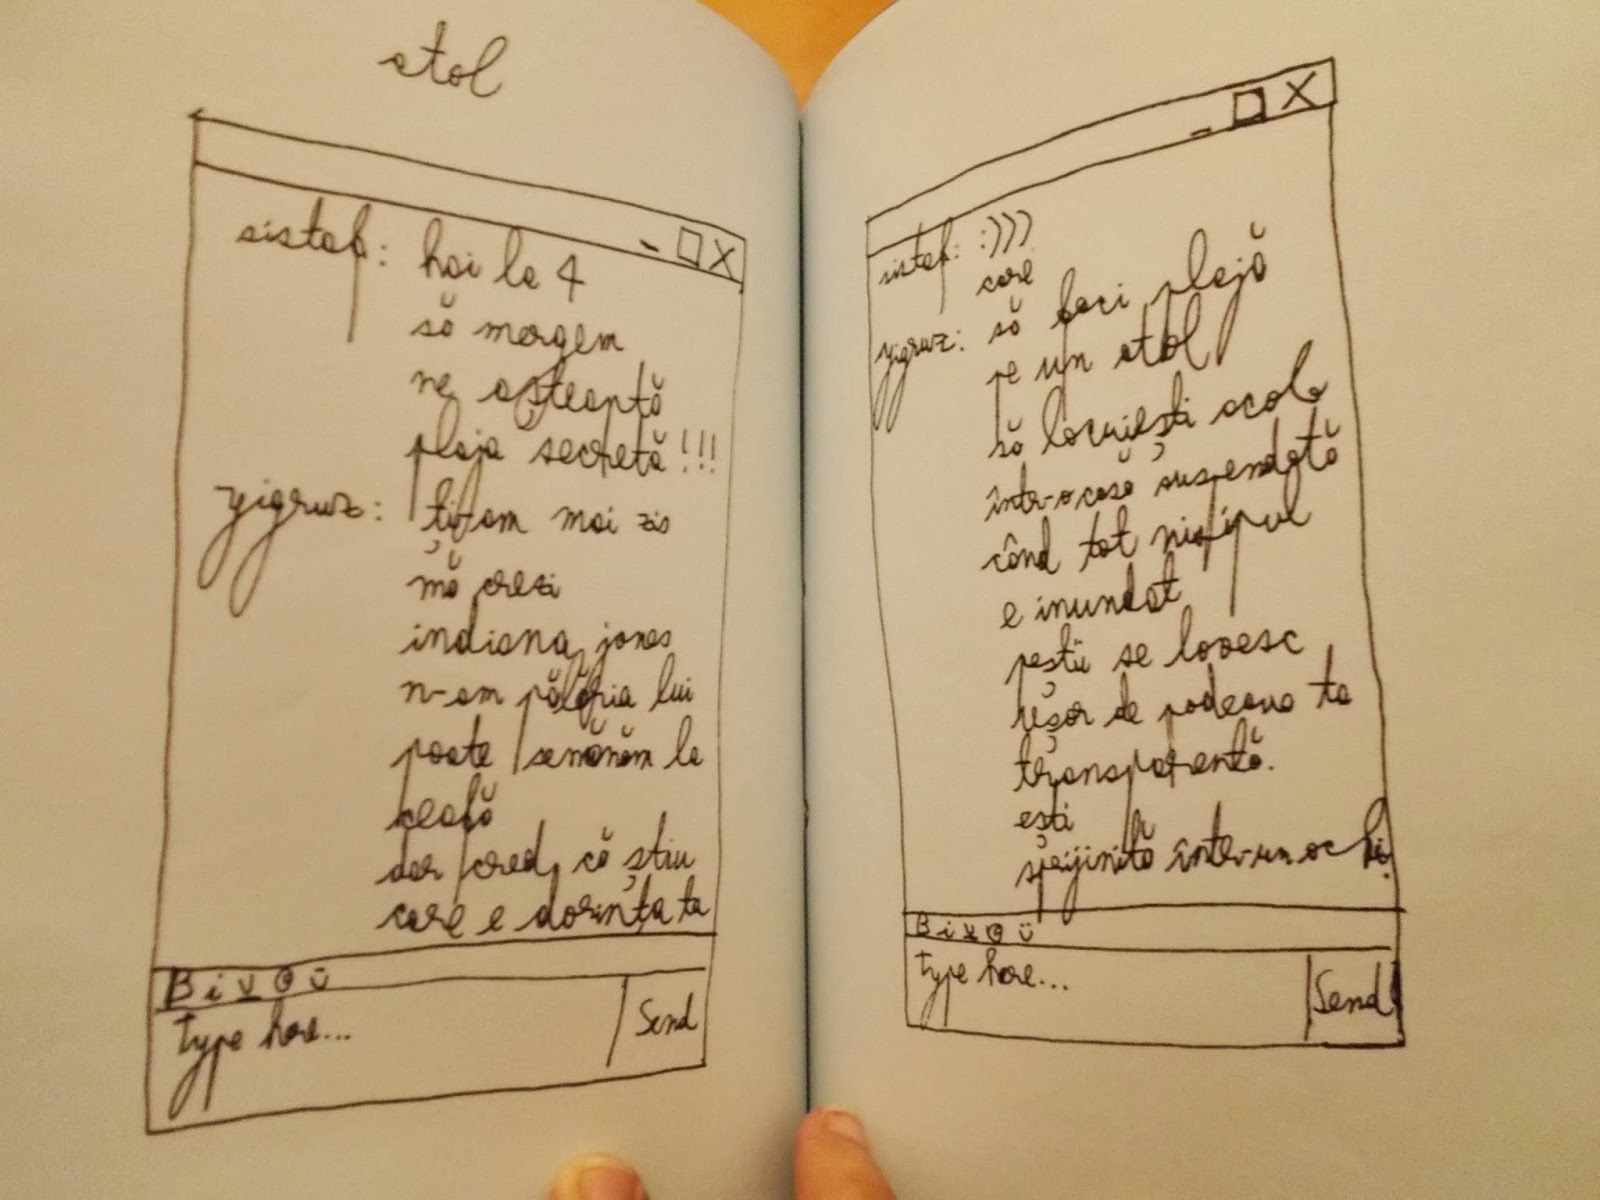 atol
sistaf: hai la 4
să mergem
ne așteaptă
plaja secretă!!!
yigruz: ți-am mai zis
mă crezi
indiana jones
n-am pălăria lui
poate semănăm la
ceafă
dar cred că știu
care e dorința ta
B i U @ ü
type here...
Send
sistaf: :)))
care
yigruz: să faci plajă
pe un atol
să locuiești acolo
într-o casă suspendată
când tot nisipul
e inundat
peștii se lovesc
ușor de podeaua ta
transparentă.
ești
sprijinită într-un ochi.
B i U @ ü
type here...
Send